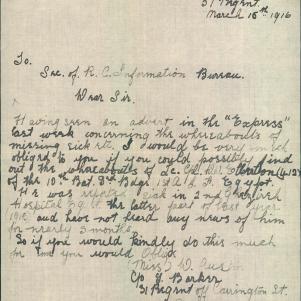 March 15th 1916
To.
Sec. of R. C. Information Bureau.
Dear Sir.
Having seen an advert in the "Express"
last week concerning the whereabouts of
missing sick etc. I would be very much
obliged to you if you could possibly find
out the whereabouts of
of the 10th Bat. 3rd Bdge. 1st A. I. F. Egypt.
He was reported sick in 2nd
Hospital the latter part of last year
1915 and have not heard any news of him
for nearly 3 months.
So if you would kindly do this much
for me you would Oblige
Miss D.
c/o J. Barker
Carington St.